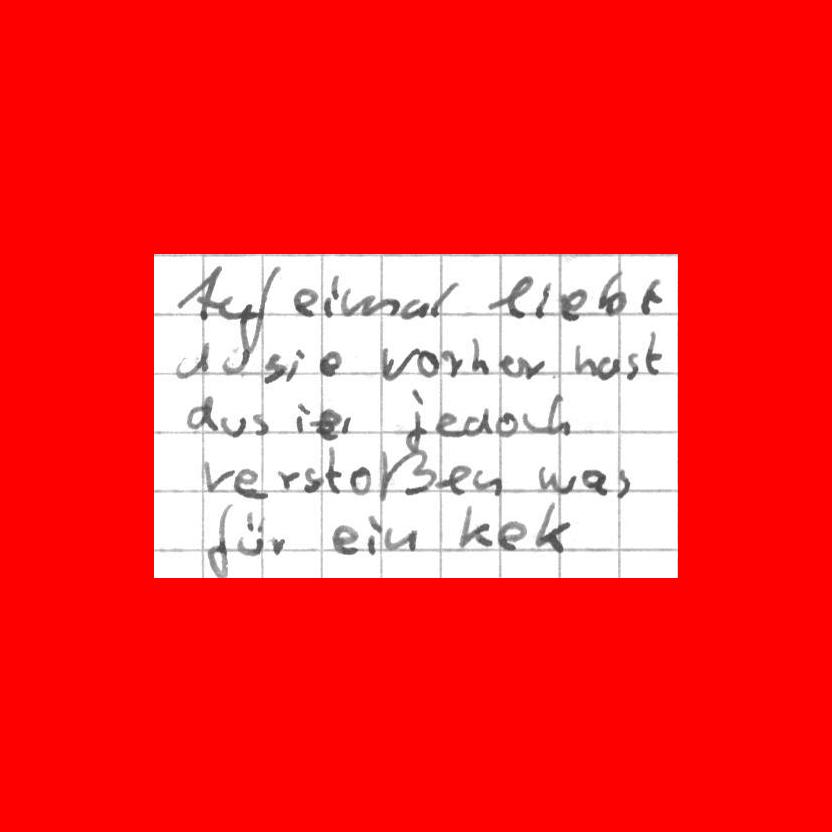 Auf einmal liebt
du sie vorher hast
du sie jedoch
verstoßen was
für ein kek